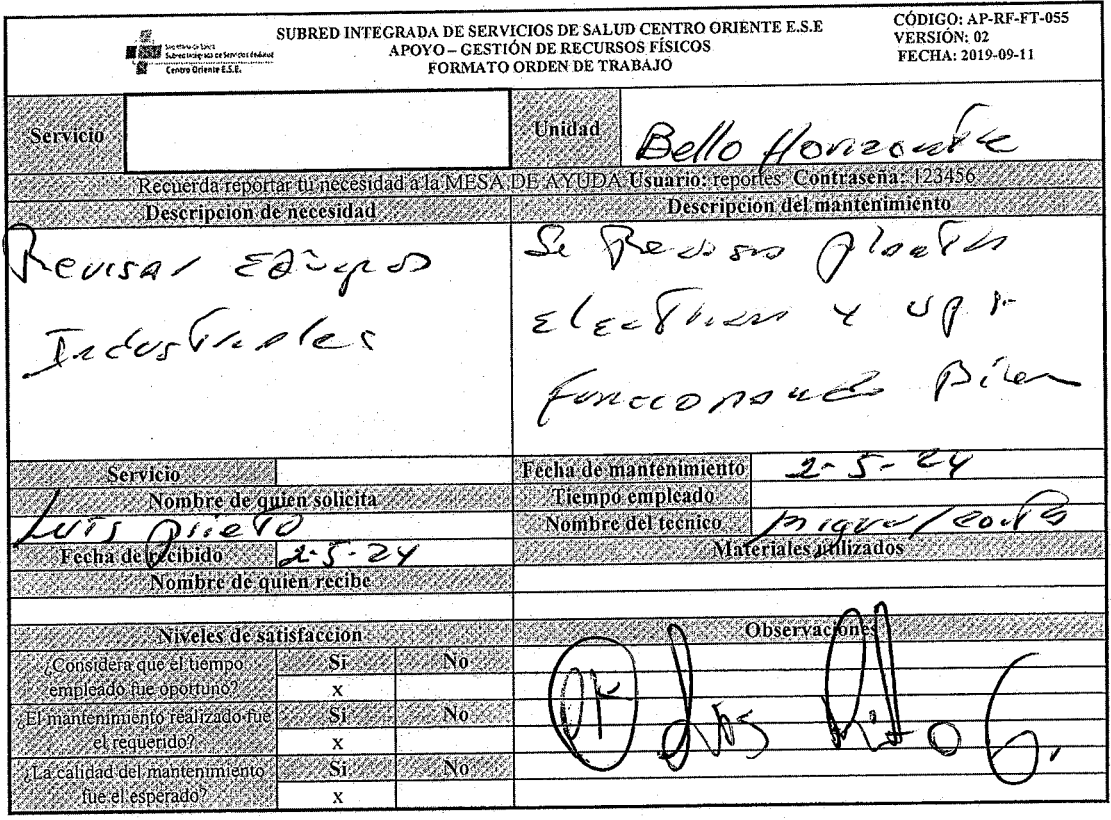 Secretaría de Salud
Subred Integrada de Servicios de Salud
Centro Oriente E.S.E.
SUBRED INTEGRADA DE SERVICIOS DE SALUD CENTRO ORIENTE E.S.E
APOYO – GESTIÓN DE RECURSOS FÍSICOS
FORMATO ORDEN DE TRABAJO
CÓDIGO: AP-RF-FT-055
VERSIÓN: 02
FECHA: 2019-09-11
Servicio
Unidad Bello Horizonte
Recuerda reportar tu necesidad a la MESA DE AYUDA Usuario: reportes Contraseña: 123456
Descripcion de necesidad
Revisar Equipos
Industriales
Descripcion del mantenimiento
Se Reviso planta
electrica y ups
funcionando bien
Servicio
Nombre de quien solicita
Luis Prieto
Fecha de recibido 2-5-24
Nombre de quien recibe
Fecha de mantenimiento 2-5-24
Tiempo empleado
Nombre del tecnico Miguel Cortes
Materiales utilizados
Niveles de satisfaccion
¿Considera que el tiempo empleado fue oportuno? Si No
x
¿El mantenimiento realizado fue el requerido? Si No
x
¿La calidad del mantenimiento fue el esperado? Si No
x
Observaciones
OK Luis Prieto G.